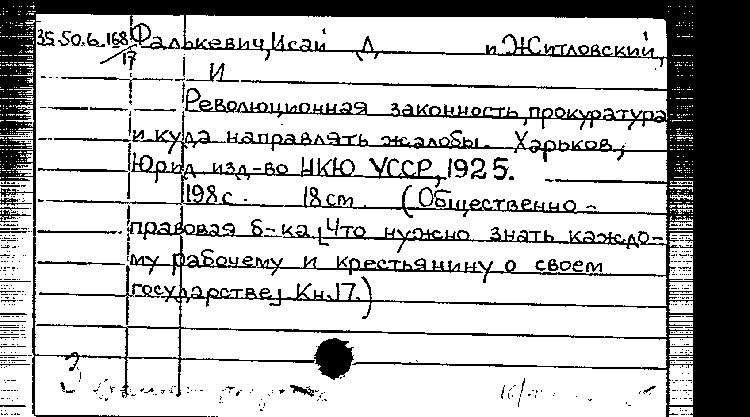 35.50.6.168/17 Фалькевич, Исай Д. и Житловский,
И
Революционная законность, прокуратура
и куда направлять жалобы. Харьков,
Юрид. изд-во НКЮ УССР, 1925.
198 с. 18 cm. (Общественно-
правовая б-ка. [Что нужно знать каждо-
му рабочему и крестьянину о своем
государстве] Кн. 17.)
3